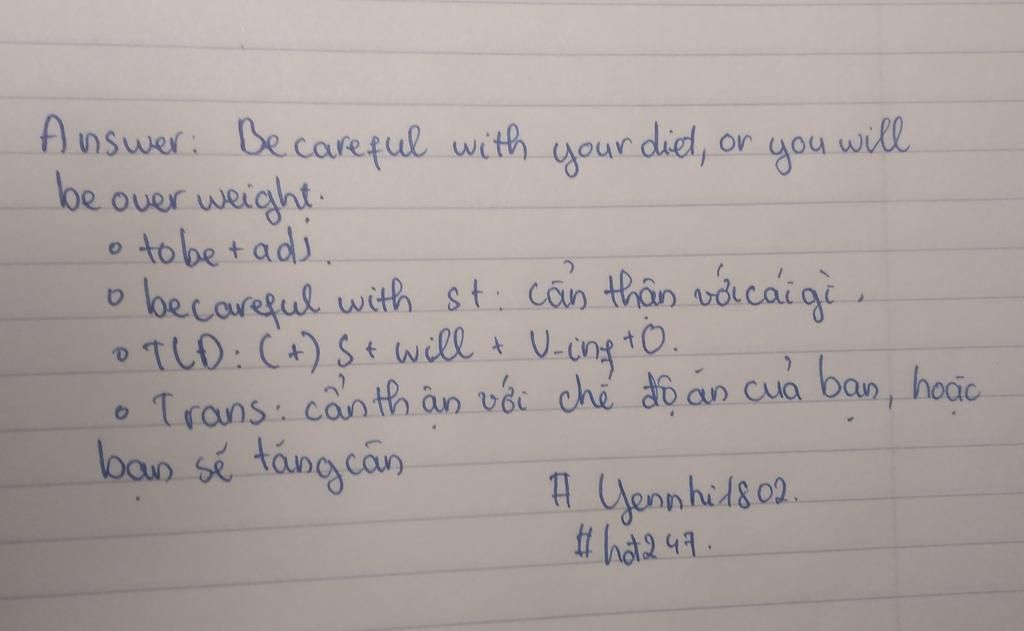 Answer: Be careful with your diet, or you will
be over weight.
o to be + adj.
o be careful with st: cẩn thận với cái gì.
o TLĐ: (+) S + will + V-inf + O.
o Trans: cẩn thận với chế độ ăn của bạn, hoặc
bạn sẽ tăng cân
# Yennhi1802.
# hot247.